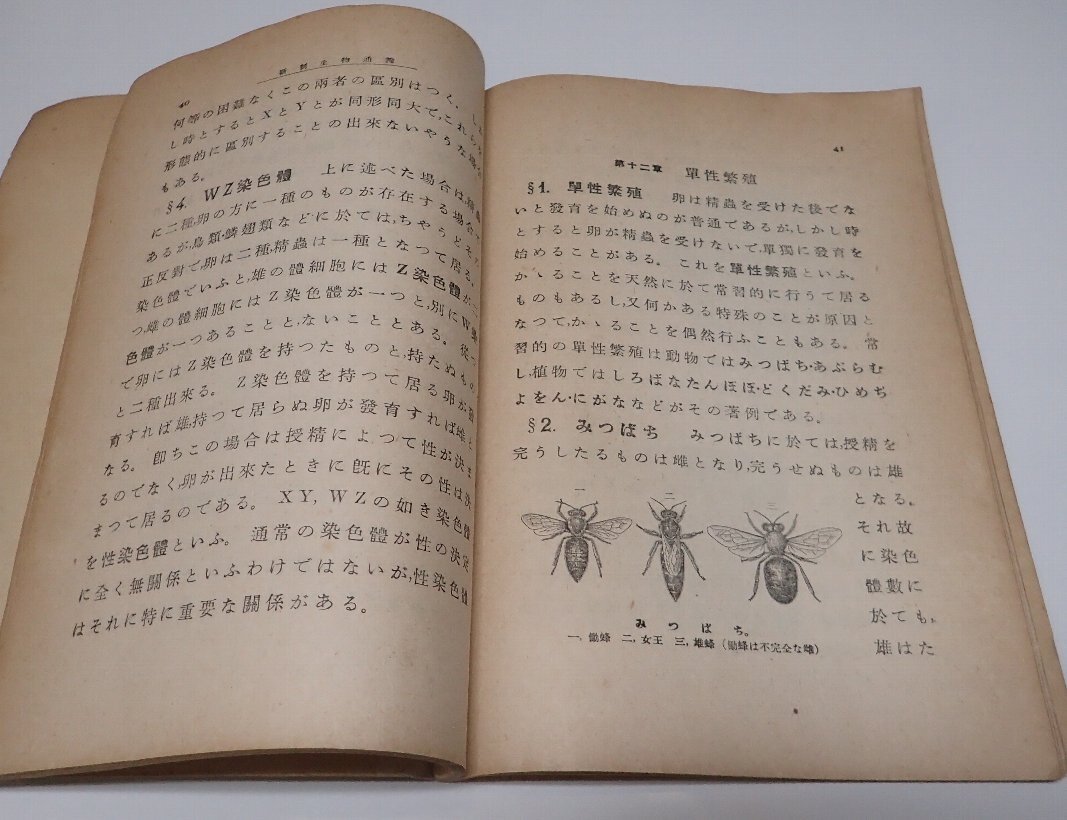 40
何等の困難なくこの兩者の區別はつく。
し時とするとXとYとが同形同大で、これらを
形態的に區別することの出來ないやうな場合
もある。
§4. WZ染色體 上に述べた場合は、精蟲
に二種、卵の方に一種のものが存在する場合で
あるが、鳥類・鱗翅類などに於ては、ちやうどその
正反對で、卵は二種、精蟲は一種となつて居る。
染色體でいふと、雄の體細胞にはZ染色體が二
つ、雌の體細胞にはZ染色體が一つと、別にW染
色體が一つあることと、ないこととある。從つ
で卵にはZ染色體を持つたものと、持たぬもの
と二種出來る。 Z染色體を持つて居る卵が發
育すれば雄、持つて居らぬ卵が發育すれば雌と
なる。 卽ちこの場合は授精によつて性が決ま
るのでなく、卵が出來たときに旣にその性は決
まつて居るのである。 XY, WZの如き染色體
を性染色體といふ。 通常の染色體が性の決定
に全く無關係といふわけではないが、性染色體
はそれに特に重要な關係がある。
41
第十二章 單性繁殖
§1. 單性繁殖 卵は精蟲を受けた後でな
いと發育を始めぬのが普通であるが、しかし時
とすると卵が精蟲を受けないで、單獨に發育を
始めることがある。 これを單性繁殖といふ。
かゝることを天然に於て常習的に行うて居る
ものもあるし、又何かある特殊のことが原因と
なつて、かゝることを偶然行ふこともある。 常
習的の單性繁殖は動物ではみつばち・あぶらむ
し、植物ではしろばなたんぽぽ・どくだみ・ひめぢ
よをん・にがななどがその著例である。
§2. みつばち みつばちに於ては、授精を
完うしたるものは雌となり、完うせぬものは雄
となる。
それ故
に染色
體數に
於ても、
雄はた
一 二 三
みつばち。
一, 働蜂 二, 女王 三, 雄蜂 (働蜂は不完全な雌)